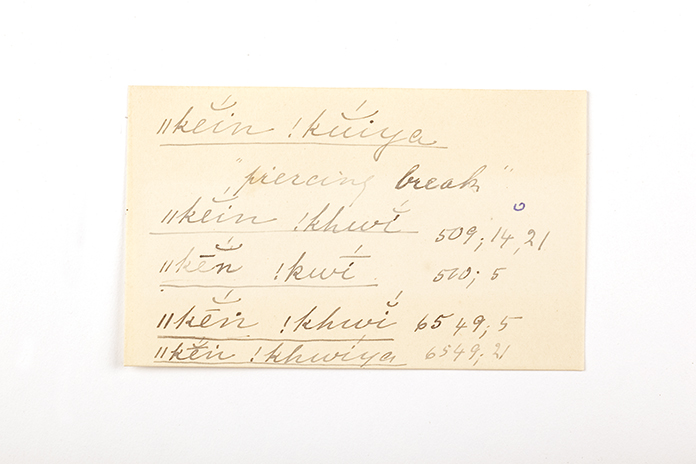 ǁkĕ́in ǃkŭ́iya
"piercing break"
ǁkĕ́in ǃkhwĭ́ 509; 14, 21
ǁkē̆́n ǃkwī́ 510; 5
ǁkē̆́n ǃkhwĭ́ 6549; 5
ǁkĕ́n ǃkhwíya 6549; 21